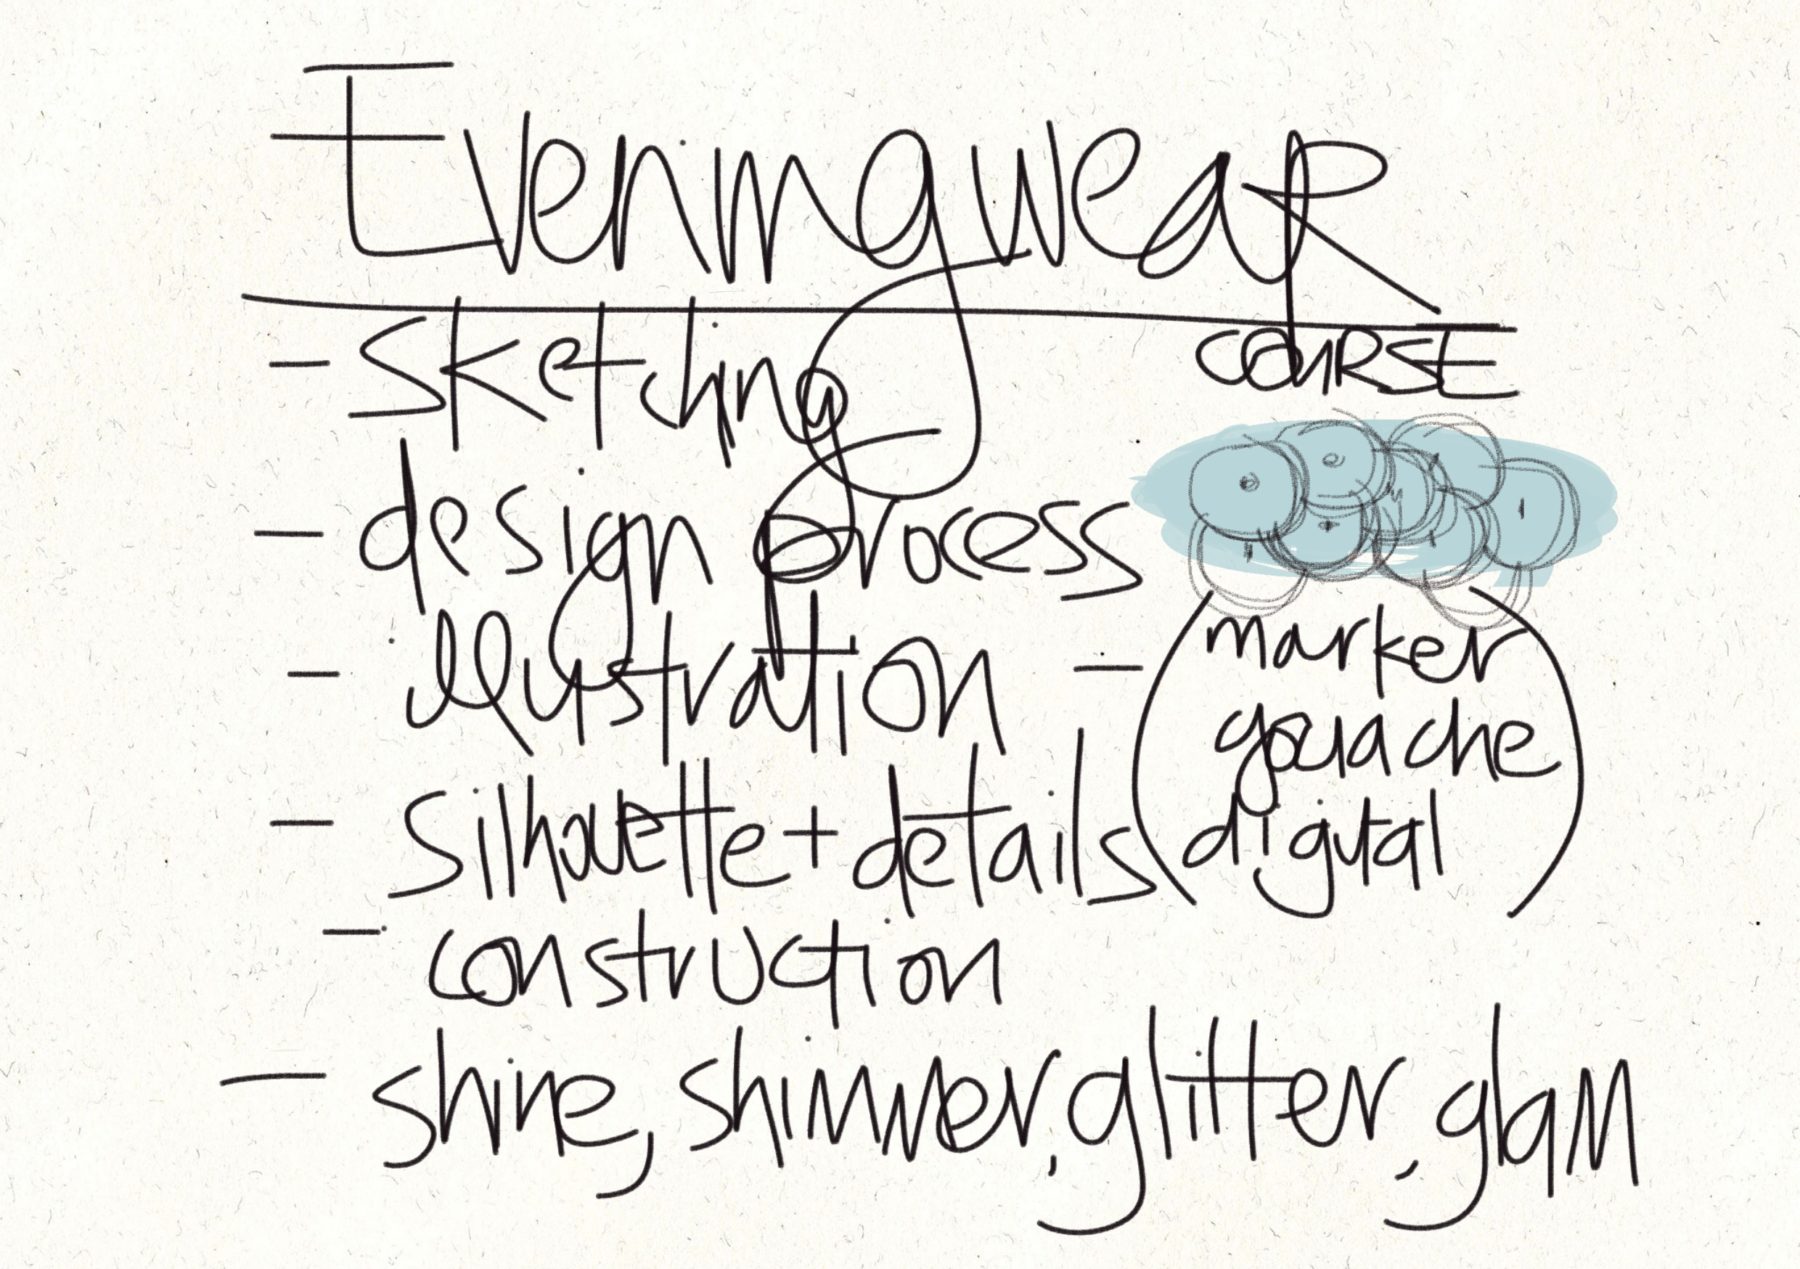 Eveningwear
COURSE
- sketching
- design process
- illustration - (marker
gouache
digital)
- silhouette + details
- construction
- shine, shimmer, glitter, glam